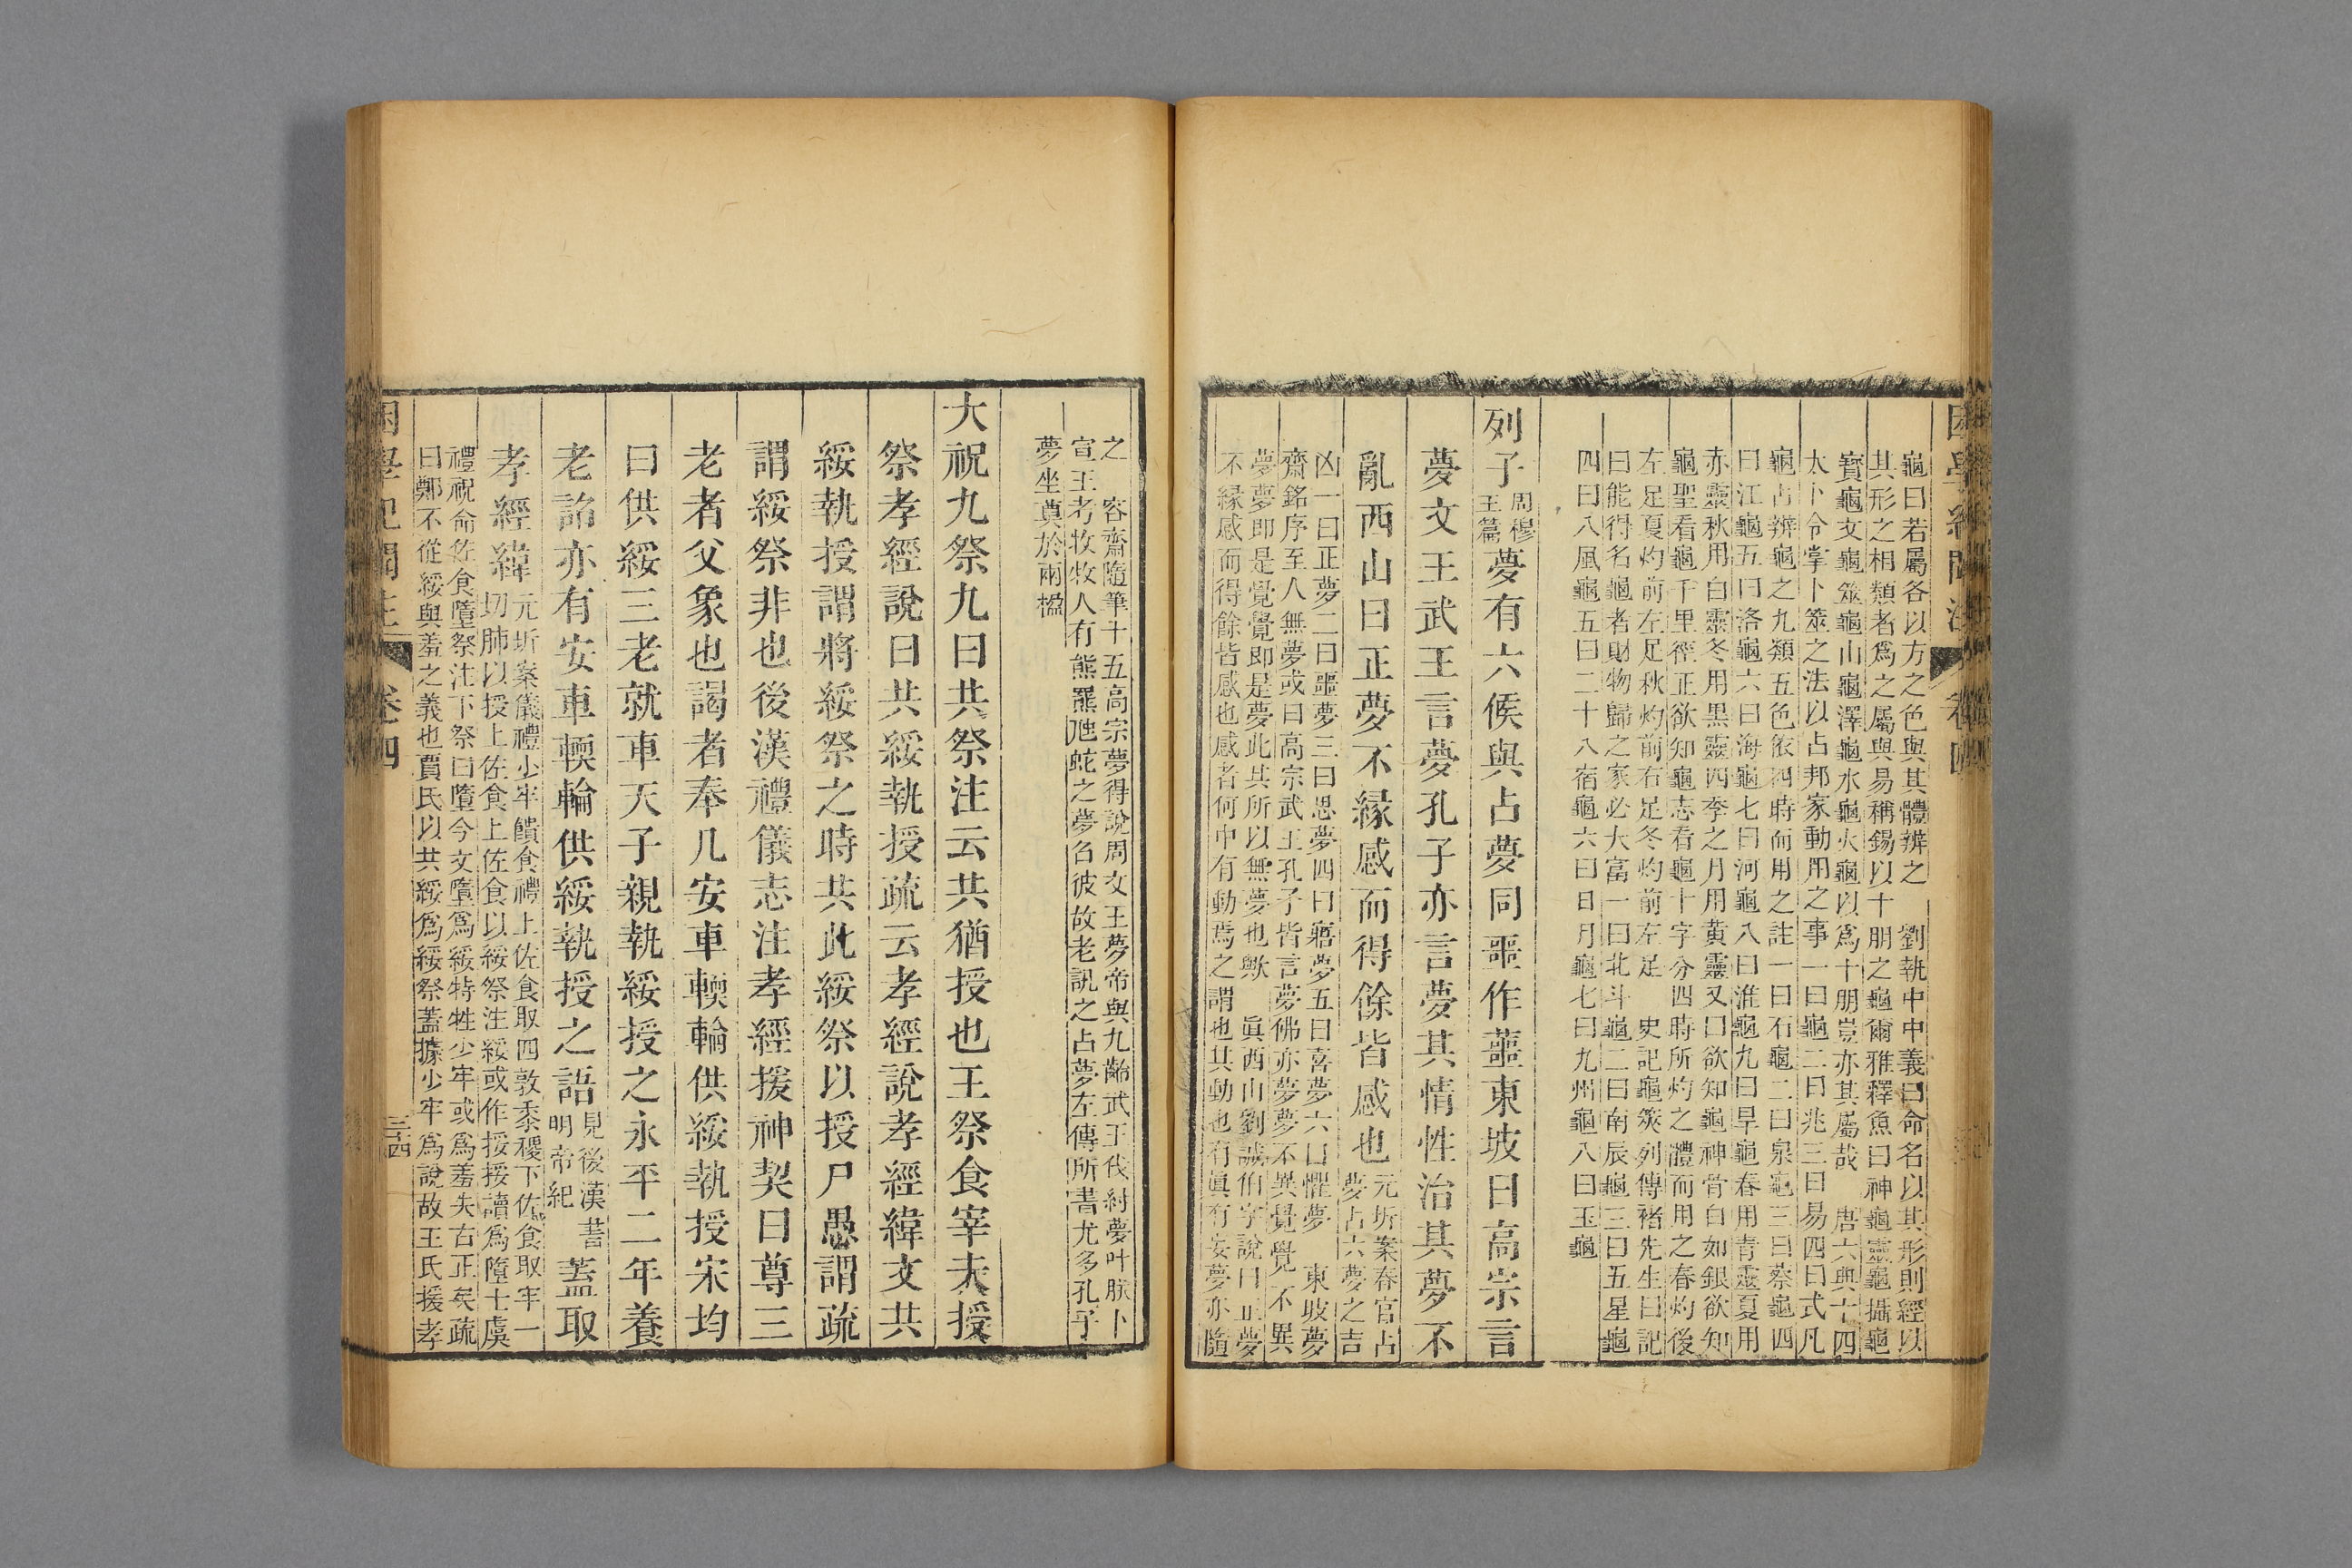 龜曰若屬各以方之色與其體辨之　劉執中中義曰命名以其形則經以
其形之相類者爲之屬與易稱錫以十朋之龜爾雅釋魚曰神龜靈龜攝龜
寶龜文龜筮龜山龜澤龜水龜火龜以爲十朋豈亦其屬哉　唐六典十四
太卜令掌卜筮之法以占邦家動用之事一曰龜二曰兆三曰易四曰式凡
龜占辨龜之九類五色依四時而用之註一曰石龜二曰泉龜三曰蔡龜四
曰江龜五曰洛龜六曰海龜七曰河龜八曰淮龜九曰旱龜春用青靈夏用
赤靈秋用白靈冬用黑靈四季之月用黄靈又曰欲知龜神骨白如銀欲知
龜聖看龜千里徑正欲知龜志看龜十字分四時所灼之體而用之春灼後
左足夏灼前左足秋灼前右足冬灼前左足　史記龜筴列傳褚先生曰記
曰能得名龜者財物歸之家必大富一曰北斗龜二曰南辰龜三曰五星龜
四曰八風龜五曰二十八宿龜六曰日月龜七曰九州龜八曰玉龜
列子周穆王篇夢有六候與占夢同噩作蘁東坡曰高宗言
夢文王武王言夢孔子亦言夢其情性治其夢不
亂西山曰正夢不緣感而得餘皆感也元圻案春官占夢占六夢之吉
凶一曰正夢二曰噩夢三曰思夢四曰寤夢五曰喜夢六曰懼夢　東坡夢
齋銘序至人無夢或曰高宗武王孔子皆言夢佛亦夢夢不異覺覺不異
夢夢即是覺覺即是夢此其所以無夢也歟　眞西山劉誠伯字說曰正夢
不緣感而得餘皆感也感者何中有動焉之謂也其動也有眞有妄夢亦隨
之　容齋隨筆十五高宗夢得說周文王夢帝與九齡武王伐紂夢叶朕卜
宣王考牧牧人有熊羆虺蛇之夢召彼故老訊之占夢左傳所書尤多孔子
夢坐奠於兩楹
大祝九祭九曰共祭注云共猶授也王祭食宰夫授
祭孝經說曰共綏執授疏云孝經說孝經緯文共
綏執授謂將綏祭之時共此綏祭以授尸愚謂疏
謂綏祭非也後漢禮儀志注孝經援神契曰尊三
老者父象也謁者奉几安車輭輪供綏執授宋均
曰供綏三老就車天子親執綏授之永平二年養
老詔亦有安車輭輪供綏執授之語見後漢書明帝紀蓋取
孝經緯元圻案儀禮少牢饋食禮上佐食取四敦黍稷下佐食取牢一切肺以授上佐食上佐食以綏祭注綏或作挼挼讀爲墮士虞
禮祝命佐食墮祭注下祭曰墮今文墮爲綏特牲少牢或爲羞失古正矣疏
曰鄭不從綏與羞之義也賈氏以共綏爲綏祭蓋據少牢爲說故王氏援孝
困學紀聞注　卷四　三四